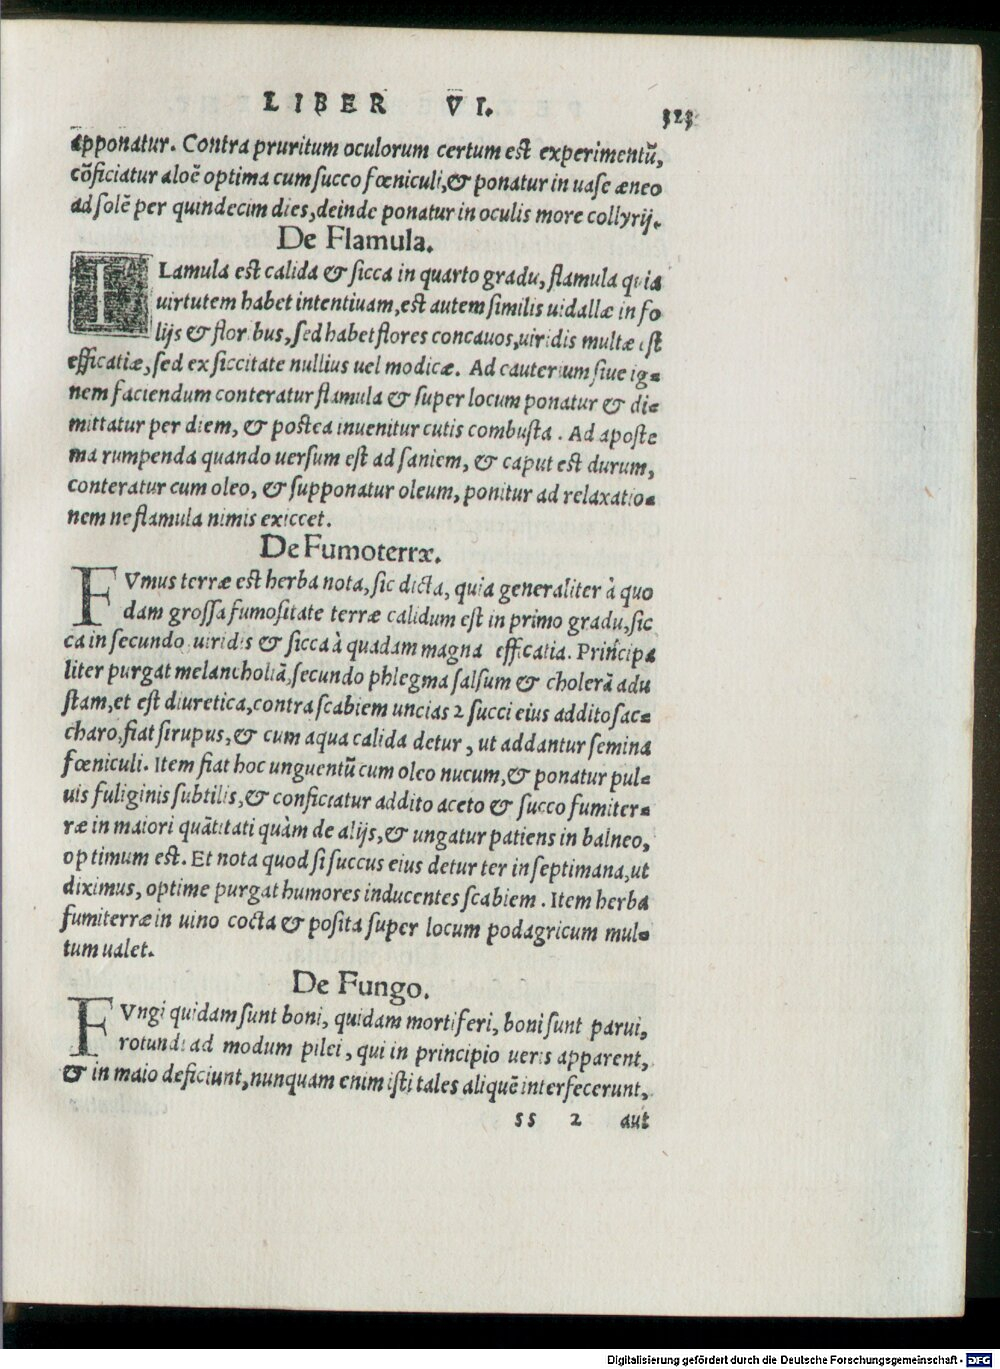 LIBER VI. 323
apponatur. Contra pruritum oculorum certum est experimentū,
cōficiatur aloē optima cum succo fœniculi, & ponatur in uase æneo
ad solē per quindecim dies, deinde ponatur in oculis more collyrij.
De Flamula.
FLamula est calida & sicca in quarto gradu, flamula quia
uirtutem habet intentiuam, est autem similis uidallæ in fo
lijs & floribus, sed habet flores concauos, uiridis multæ est
efficatiæ, sed ex siccitate nullius uel modicæ. Ad cauterium siue ig=
nem faciendum conteratur flamula & super locum ponatur & di=
mittatur per diem, & postea inuenitur cutis combusta. Ad aposte
ma rumpenda quando uersum est ad saniem, & caput est durum,
conteratur cum oleo, & supponatur oleum, ponitur ad relaxatio=
nem ne flamula nimis exiccet.
De Fumoterræ.
FVmus terræ est herba nota, sic dicta, quia generaliter à quo
dam grossa fumositate terræ calidum est in primo gradu, sic
ca in secundo uiridis & sicca à quadam magna efficatia. Principa
liter purgat melancholiā, secundo phlegma salsum & cholerā adu
stam, et est diuretica, contra scabiem uncias 2 succi eius addito sac=
charo, fiat sirupus, & cum aqua calida detur, ut addantur semina
fœniculi. Item fiat hoc unguentū cum oleo nucum, & ponatur pul=
uis fuliginis subtilis, & conficiatur addito aceto & succo fumiter=
ræ in maiori quātitati quàm de alijs, & ungatur patiens in balneo,
optimum est. Et nota quod si succus eius detur ter in septimana, ut
diximus, optime purgat humores inducentes scabiem. Item herba
fumiterræ in uino cocta & posita super locum podagricum mul=
tum ualet.
De Fungo.
FVngi quidam sunt boni, quidam mortiferi, boni sunt parui,
rotundi ad modum pilei, qui in principio ueris apparent,
& in maio deficiunt, nunquam enim isti tales aliquē interfecerunt,
ss 2 aut
Digitalisierung gefördert durch die Deutsche Forschungsgemeinschaft - DFG